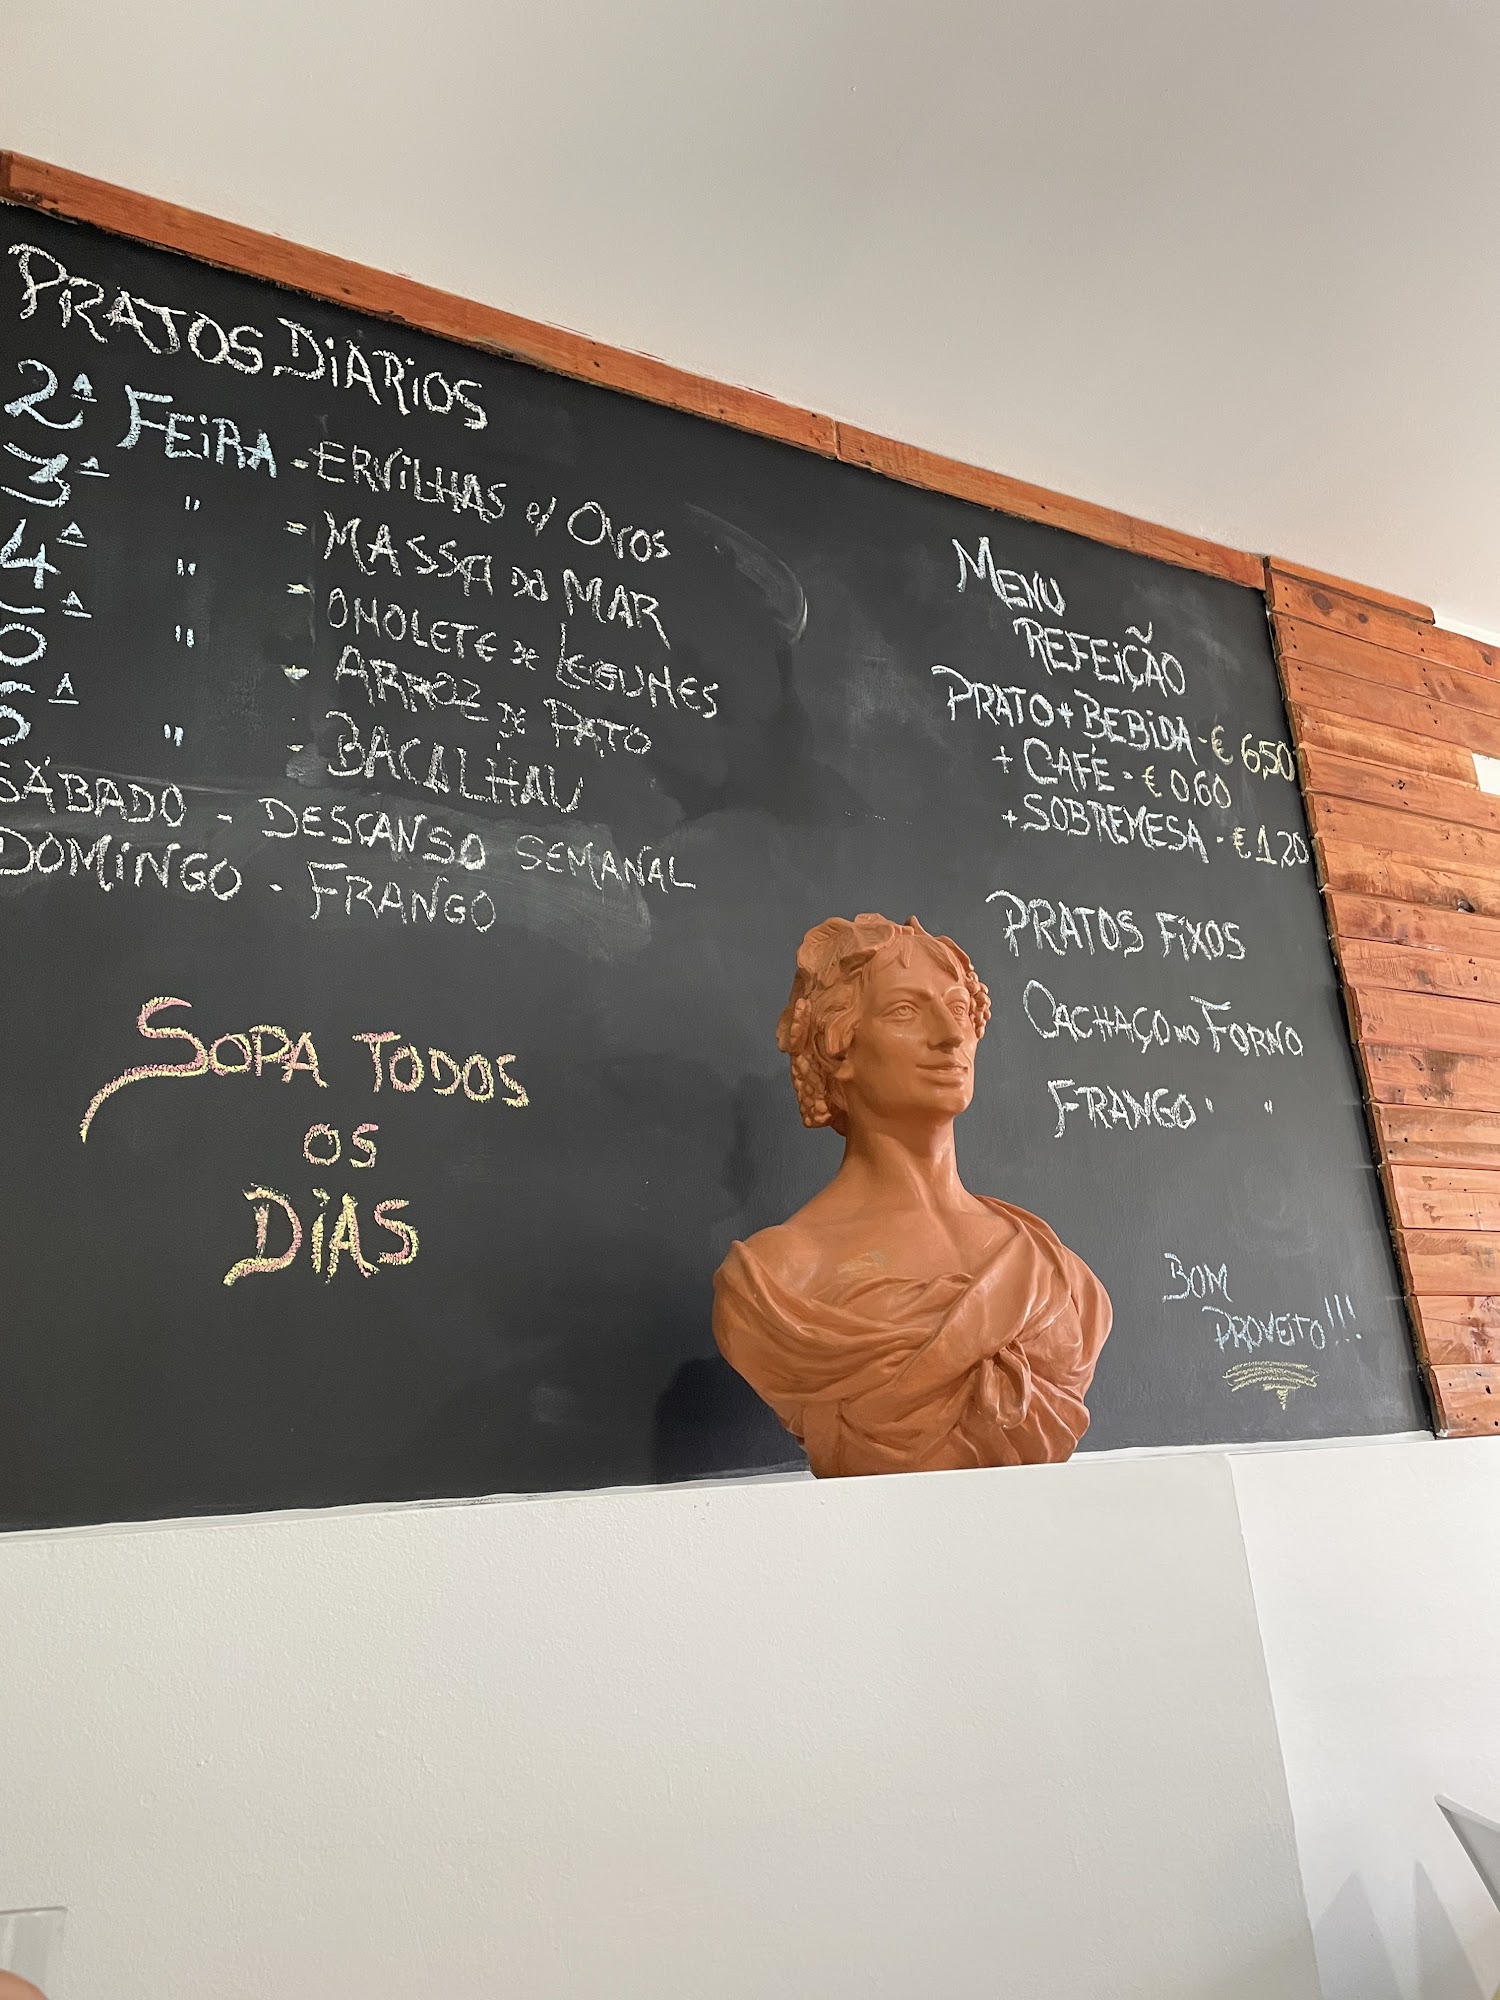 PRATOS DIÁRIOS
2ª FEIRA - ERVILHAS c/ OVOS
3ª " = MASSA DO MAR
4ª " = OMOLETE DE LEGUMES
5ª " - ARROZ DE PATO
6ª " - BACALHAU
SÁBADO - DESCANSO SEMANAL
DOMINGO - FRANGO
SOPA TODOS
OS
DIAS
MENU
REFEIÇÃO
PRATO + BEBIDA - € 6,50
+ CAFÉ - € 0,60
+ SOBREMESA - € 1,20
PRATOS FIXOS
CACHAÇO NO FORNO
FRANGO " "
BOM
PROVEITO!!!